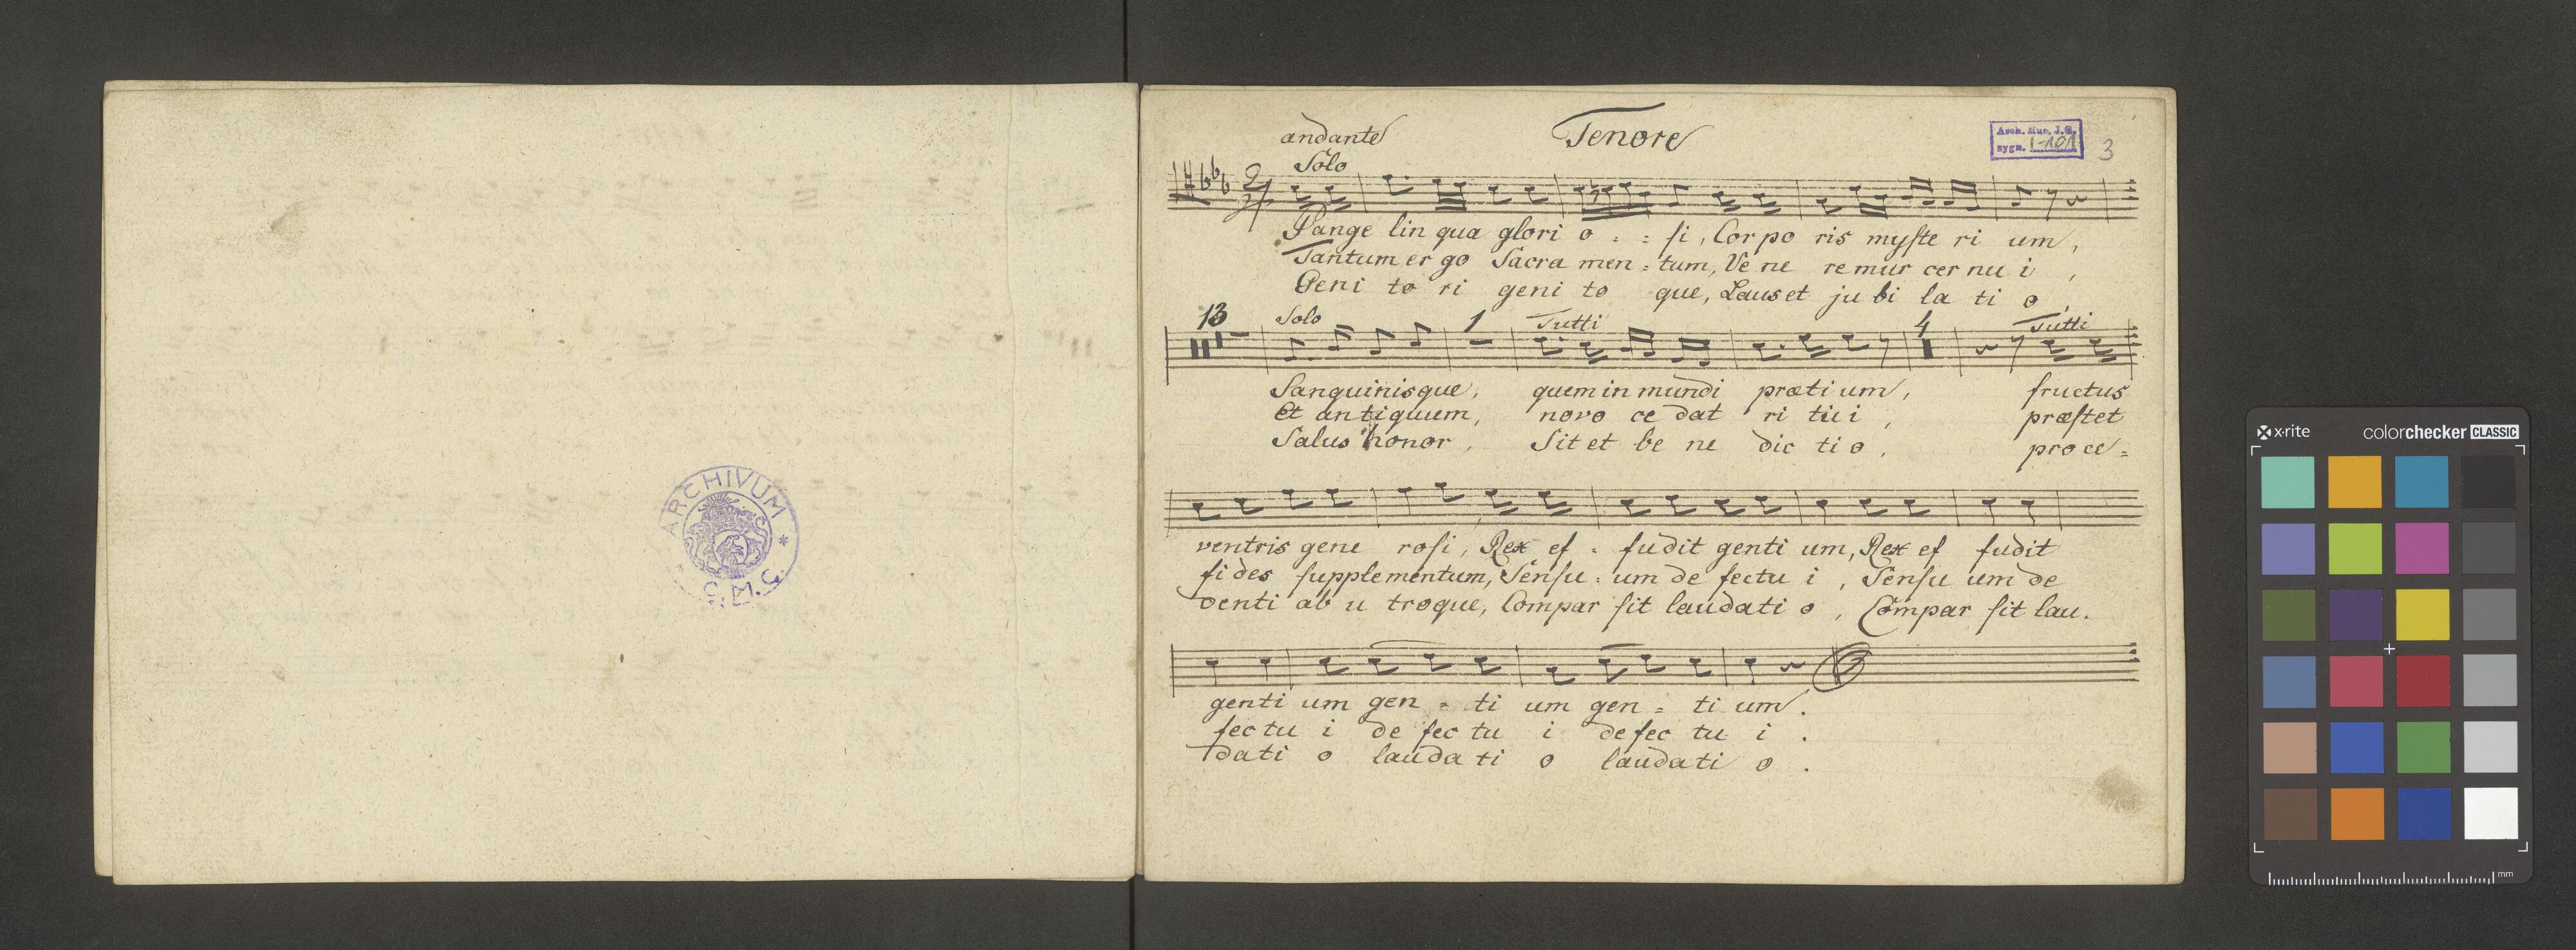 ARCHIVUM * C. M. C.
andante Tenore
Arch. Mus. J. G.
sygn. I-101
3
Solo
2/4
Pange lin qua glori o = = si, Cor po ris myste ri um,
Tantum er go Sacra men = tum, Ve ne re mur cer nu i ,
Geni to ri geni to que, Laus et ju bi la ti o ,
13 Solo 1 Tutti 4 Tutti
Sanguinisque, quem in mundi prætium, fructus
et antiquum, novo ce dat ri tui , præstet
Salus honor, Sit et be ne dic ti o , pro ce =
ventris gene rosi, Rex ef = fudit genti um, Rex ef fudit
fi des supplementum, Sensu = um de fectu i , Sensu um de
denti ab u troque, Compar sit laudati o , Compar sit lau.
genti um gen = ti um gen = ti um.
fec tu i de fec tu i defec tu i .
dati o lauda ti o laudati o .
x·rite colorchecker CLASSIC
mm